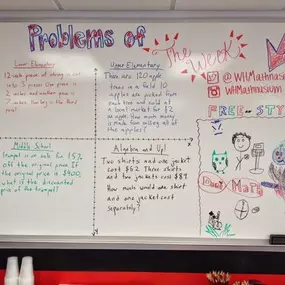 Problems of
The Week
Lower Elementary
12 inch piece of string is cut
into 3 pieces. One piece is
2 inches and another piece is
7 inches. How long is the third
piece?
Upper Elementary
There are 120 apple
trees in a field. 10
apples are picked from
each tree and sold at
a local market for $2
an apple. How much money
is made from selling all of
the apples?
@WHMathnasium
WHMathnasium
FREE-STY
Middle School
Trumpet is on sale for 15%
off the original price. If
the original price is $400,
what is the discounted
price of the trumpet?
Algebra and Up!
Two shirts and one jacket
cost $62. Three shirts
and two jackets cost $89.
How much would one shirt
and one jacket cost
separately?
Mary
y
x